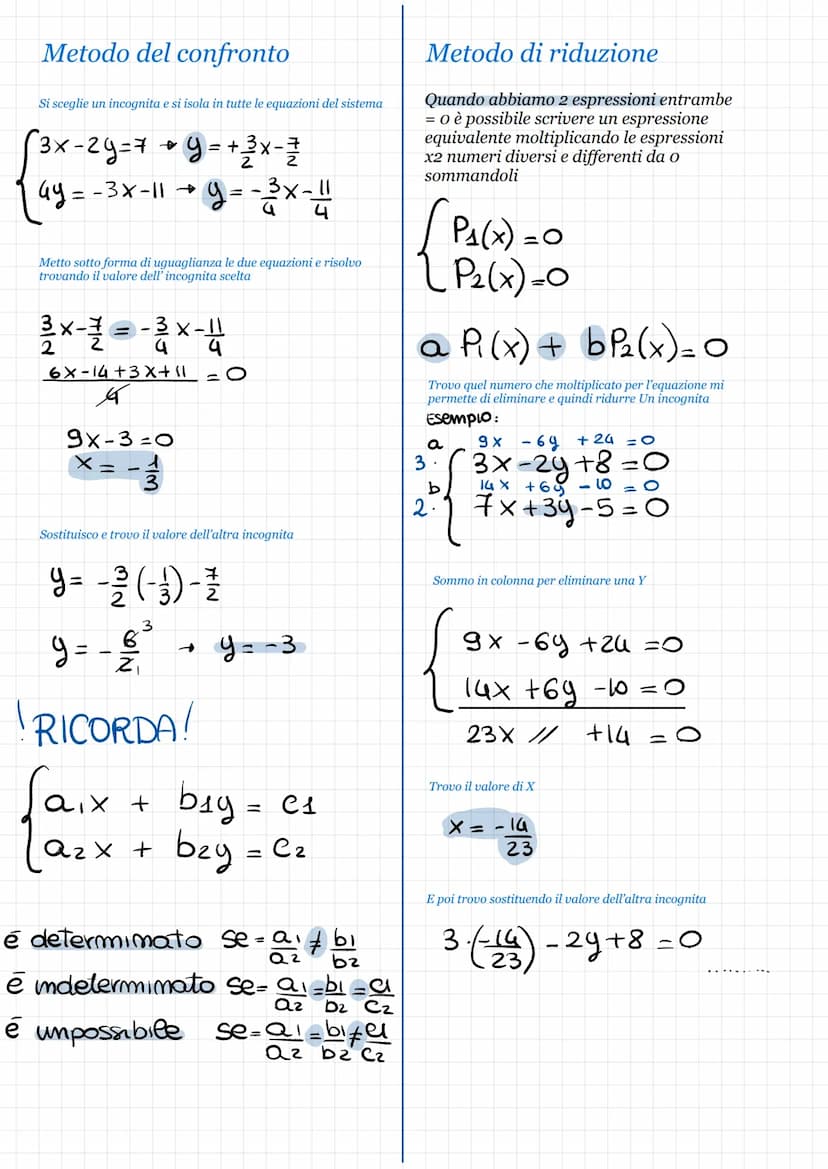 Metodo del confronto
Si sceglie un incognita e si isola in tutte le equazioni del sistema
3x-2y=7 → y=+3/2x-7/2
4y=-3x-11 → y=-3/4x-11/4
Metto sotto forma di uguaglianza le due equazioni e risolvo
trovando il valore dell' incognita scelta
3/2x-7/2=-3/4x-11/4
6x-14+3x+11/4=0
9x-3=0
x=-1/3
Sostituisco e trovo il valore dell'altra incognita
y=-3/2(-1/3)-7/2
y=-6³/2₁ → y=-3
!RICORDA!
a₁x + b1y = c1
a2x + b2y = c2
è determinato se=a₁/a2≠b1/b2
è indeterminato se=a₁/a2=b1/b2=c1/c2
è impossibile se=a₁/a2=b1/b2≠c1/c2
Metodo di riduzione
Quando abbiamo 2 espressioni entrambe
= 0 è possibile scrivere un espressione
equivalente moltiplicando le espressioni
x2 numeri diversi e differenti da 0
sommandoli
P1(x)=0
P2(x)=0
a P₁(x) + bP2(x)=0
Trovo quel numero che moltiplicato per l'equazione mi
permette di eliminare e quindi ridurre Un incognita
Esempio:
a 9x -6y +24 =0
3· 3x-2y+8=0
b 14x +6y -10 =0
2· 7x+3y-5=0
Sommo in colonna per eliminare una Y
9x -6y +24 =0
14x +6y -10 =0
23x // +14 =0
Trovo il valore di X
x=-14/23
E poi trovo sostituendo il valore dell'altra incognita
3·(-14/23)-2y+8=0 .........